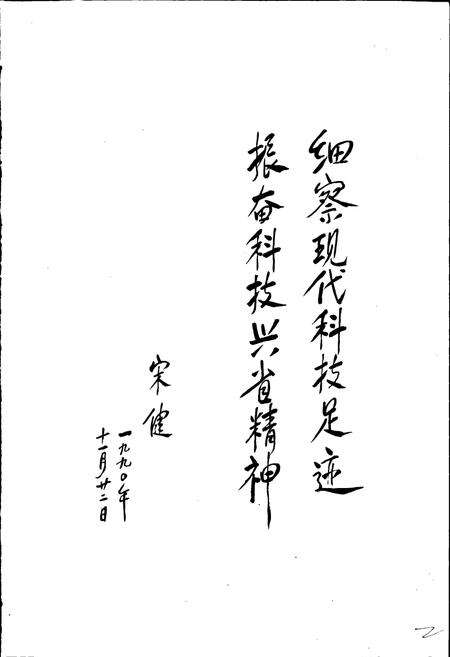 细察现代科技足迹
振奋科技兴省精神
宋健
一九九〇年
十一月廿二日